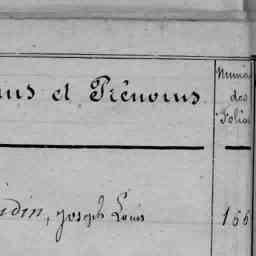 ms et Prénoms
Numéros
des
Folios
din, Joseph Louis
166